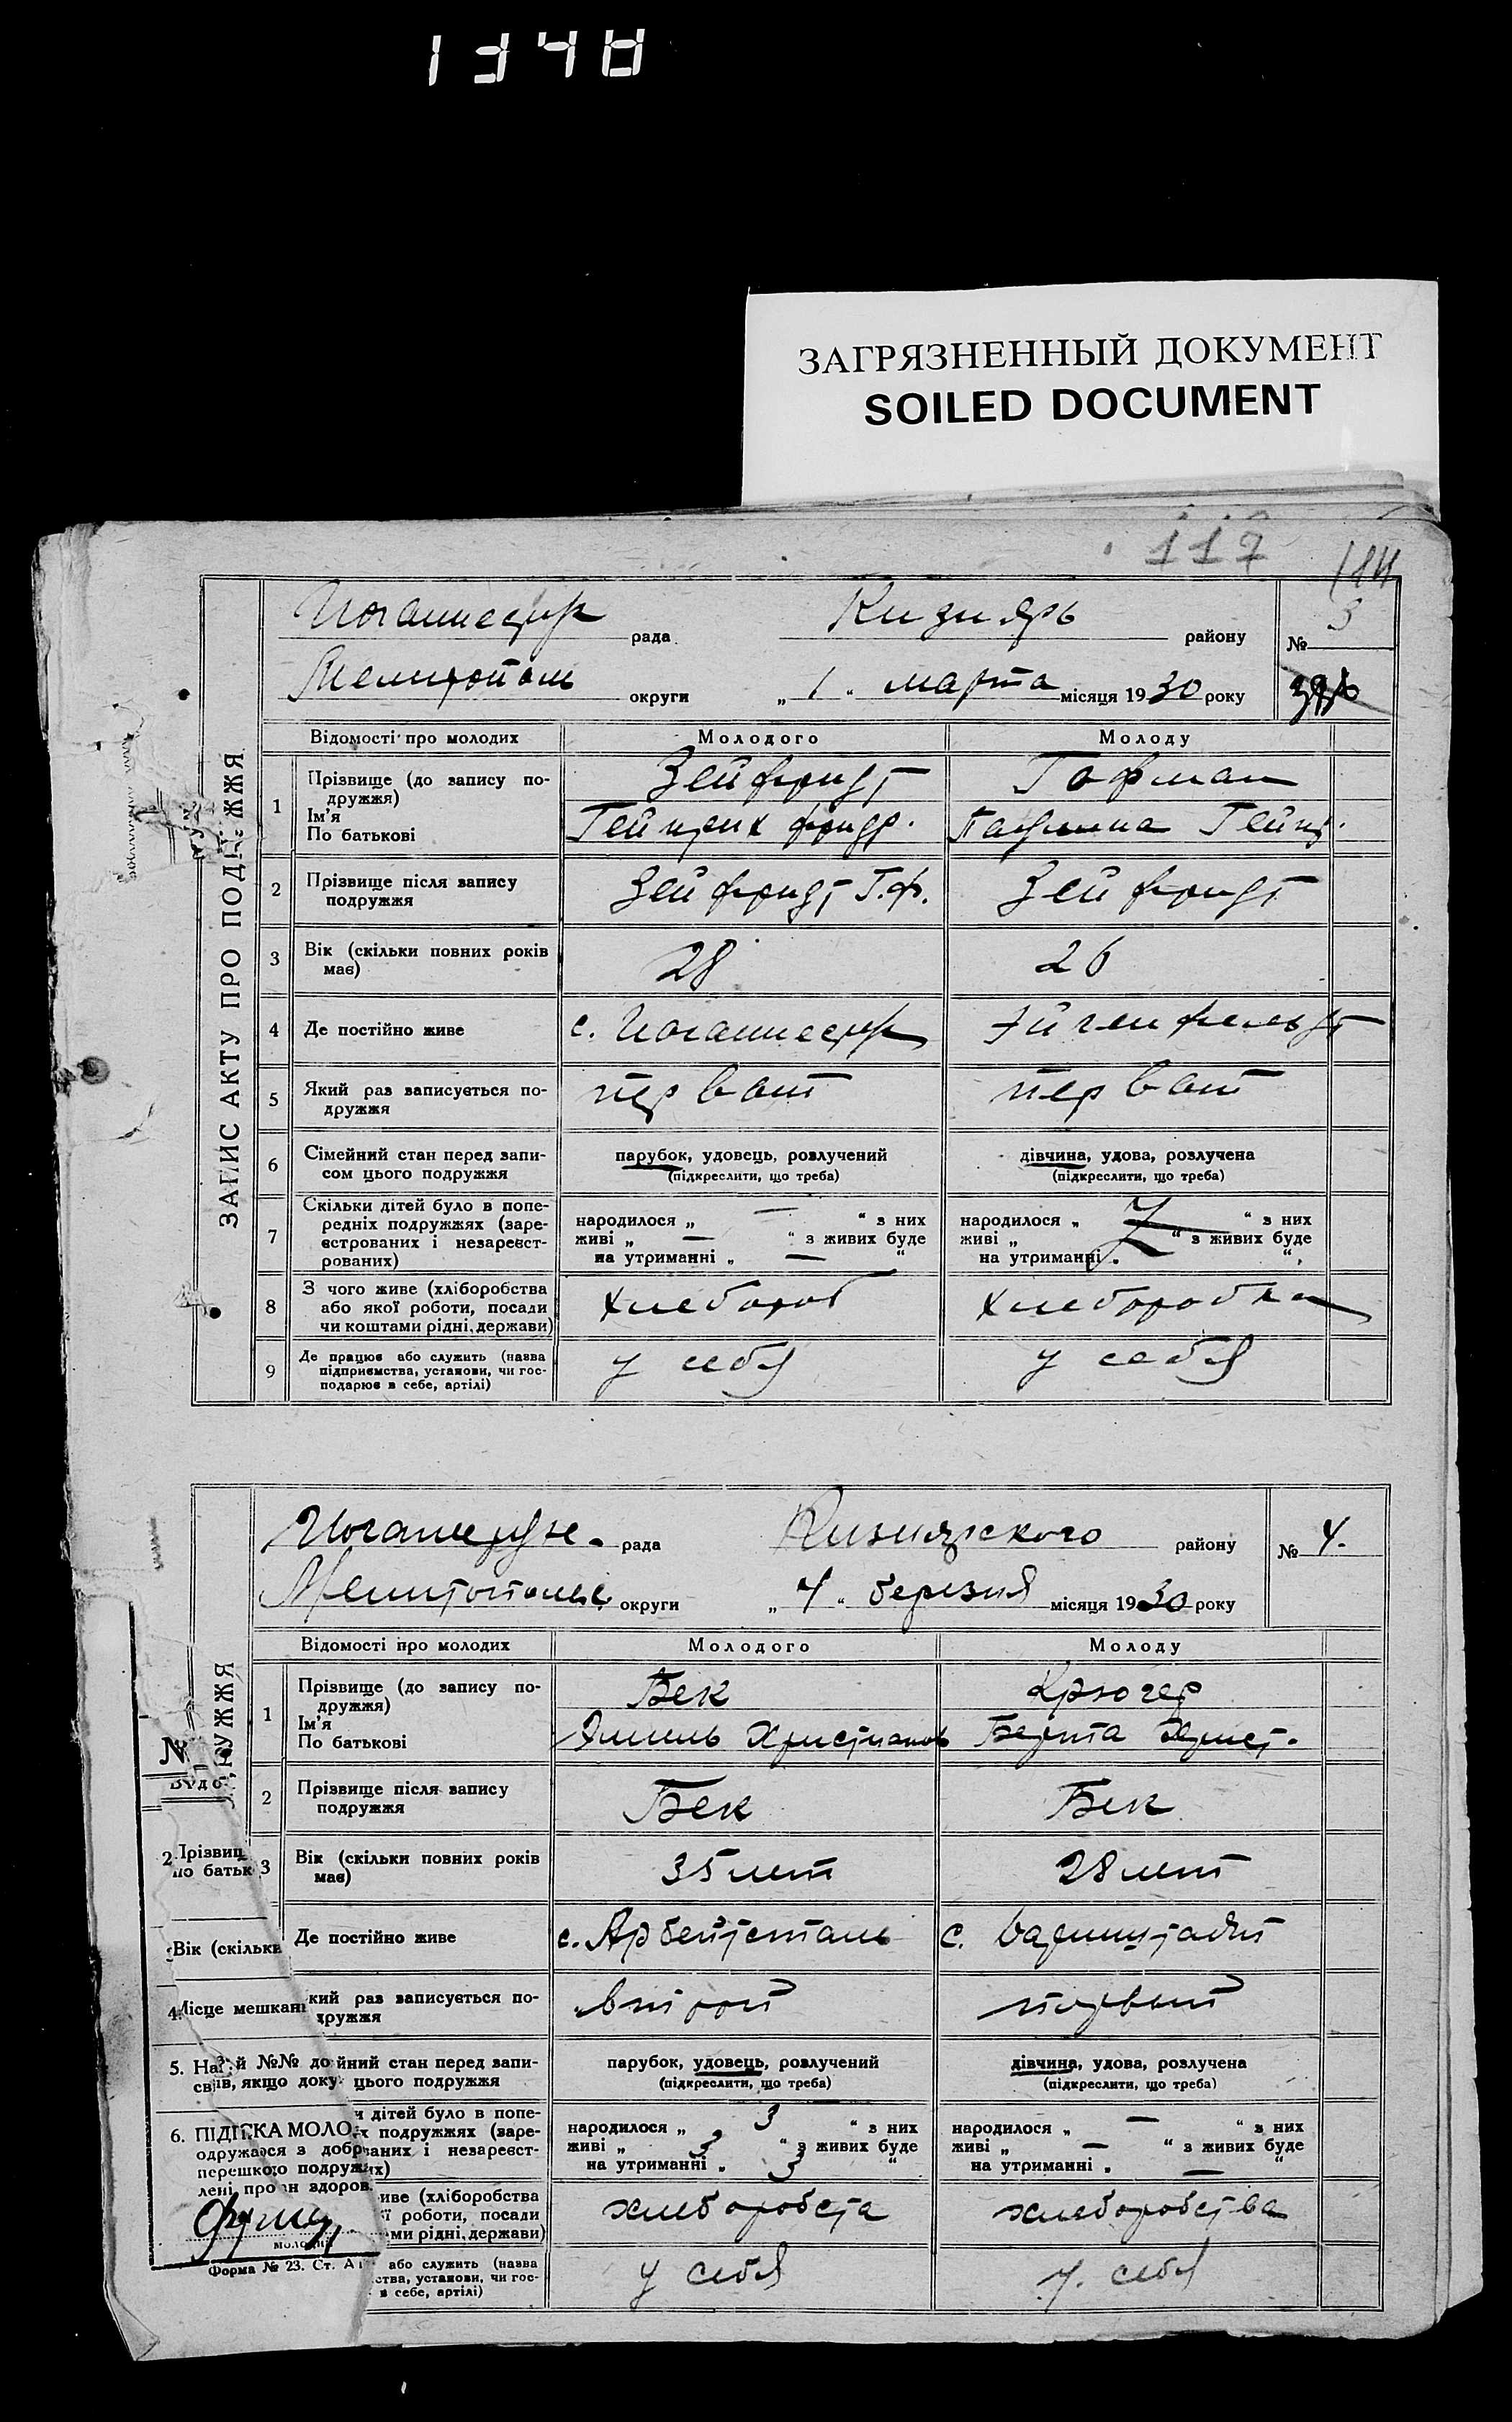 1348
ЗАГРЯЗНЕННЫЙ ДОКУМЕНТ
SOILED DOCUMENT
117
ЗАПИС АКТУ ПРО ПОДРУЖЖЯ
Иоганнесру рада Кизиярь району № 3
Мелитополь округи „ 1 “ марта місяця 1930 року
Відомості про молодих Молодого Молоду
1 Прізвище (до запису по-
дружжя)
Ім'я
По батькові
Зейфридт Гофман
Гейнрих Фридр. Гейнр.
2 Прізвище після запису
подружжя
Зейфридт Г.Ф. Зейфридт
3 Вік (скільки повних років
має)
28 26
4 Де постійно живе с. Иоганнесру Эйгенфельдт
5 Який раз записується по-
дружжя
первый первый
6 Сімейний стан перед запи-
сом цього подружжя
парубок, удовець, розлучений дівчина, удова, розлучена
(підкреслити, що треба) (підкреслити, що треба)
7 Скільки дітей було в попе-
редніх подружжях (заре-
єстрованих і незареєст-
рованих)
народилося „ — “ з них народилося „ “ з них
живі „ — “ з живих буде живі „ “ з живих буде
на утриманні „ — “ на утриманні „ “
8 З чого живе (хліборобства
або якої роботи, посади
чи коштами рідні, держави)
хлебороб хлеборобка
9 Де працює або служить (назва
підприємства, установи, чи гос-
подарює в себе, артілі)
у себя у себя
рада Кизиярского району № 4.
округи „ 4 “ березня місяця 1930 року
Відомості про молодих Молодого Молоду
1 Прізвище (до запису по-
дружжя)
Ім'я
По батькові
Бек Крюгер
Эмиль Христианов Берта Христ.
2 Прізвище після запису
подружжя
Бек Бек
3 Вік (скільки повних років
має)
35 лет 28 лет
Де постійно живе с. Арбейтсталь с.
кий раз записується по-
дружжя
второй первый
йний стан перед запи-
цього подружжя
парубок, удовець, розлучений дівчина, удова, розлучена
(підкреслити, що треба) (підкреслити, що треба)
и дітей було в попе-
х подружжях (заре-
ваних і незареєст-
их)
народилося „ 3 “ з них народилося „ — “ з них
живі „ 3 “ з живих буде живі „ — “ з живих буде
на утриманні „ 3 “ на утриманні „ — “
иве (хліборобства
ї роботи, посади
ми рідні, держави)
хлеборобста хлеборобства
або служить (назва
ства, установи, чи гос-
в себе, артілі)
у себя у. себя
РУЖЖЯ
№
2. Прізвищ
по батьк
Вік (скільки
4. Місце мешкан
5. На №№ до
свів, якщо доку
6. ПІДПИСКА МОЛО
одружався з добр
перешкого подруж
лені про н здоров
молодий
Форма № 23. Ст. А